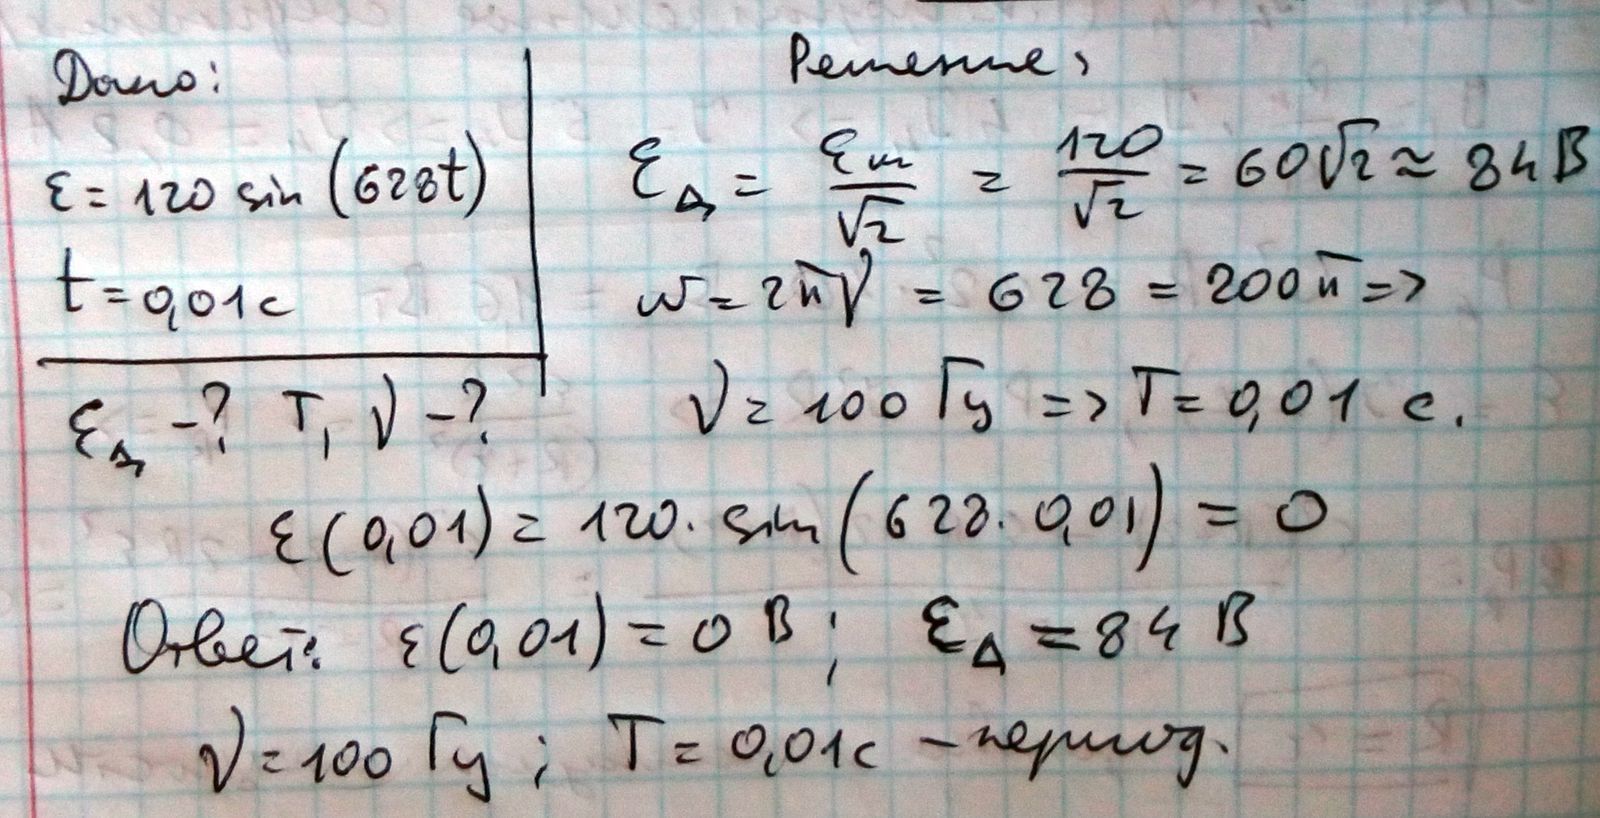 Дано:
ε = 120 sin (628t)
t = 0,01 с
ε_д -? T, ν -?
Решение:
ε_д = ε_m/√2 = 120/√2 = 60√2 ≈ 84 В
ω = 2πν = 628 = 200π =>
ν = 100 Гц => T = 0,01 с.
ε(0,01) = 120 · sin(628 · 0,01) = 0
Ответ: ε(0,01) = 0 В; ε_д = 84 В
ν = 100 Гц; T = 0,01 с - период.